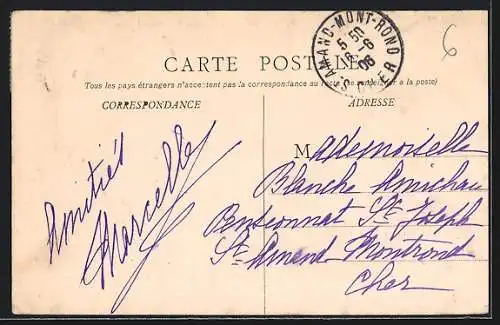 CARTE POSTALE
Tous les pays étrangers n'acceptent pas la correspondance au recto (se renseigner à la poste)
CORRESPONDANCE
ADRESSE
ST-AMAND-MONT-ROND
5 50
8-6
06
CHER
6
Amitiés
Marcelle
Mademoiselle
Blanche Amichau
Pensionnat St Joseph
St Amand Montrond
Cher